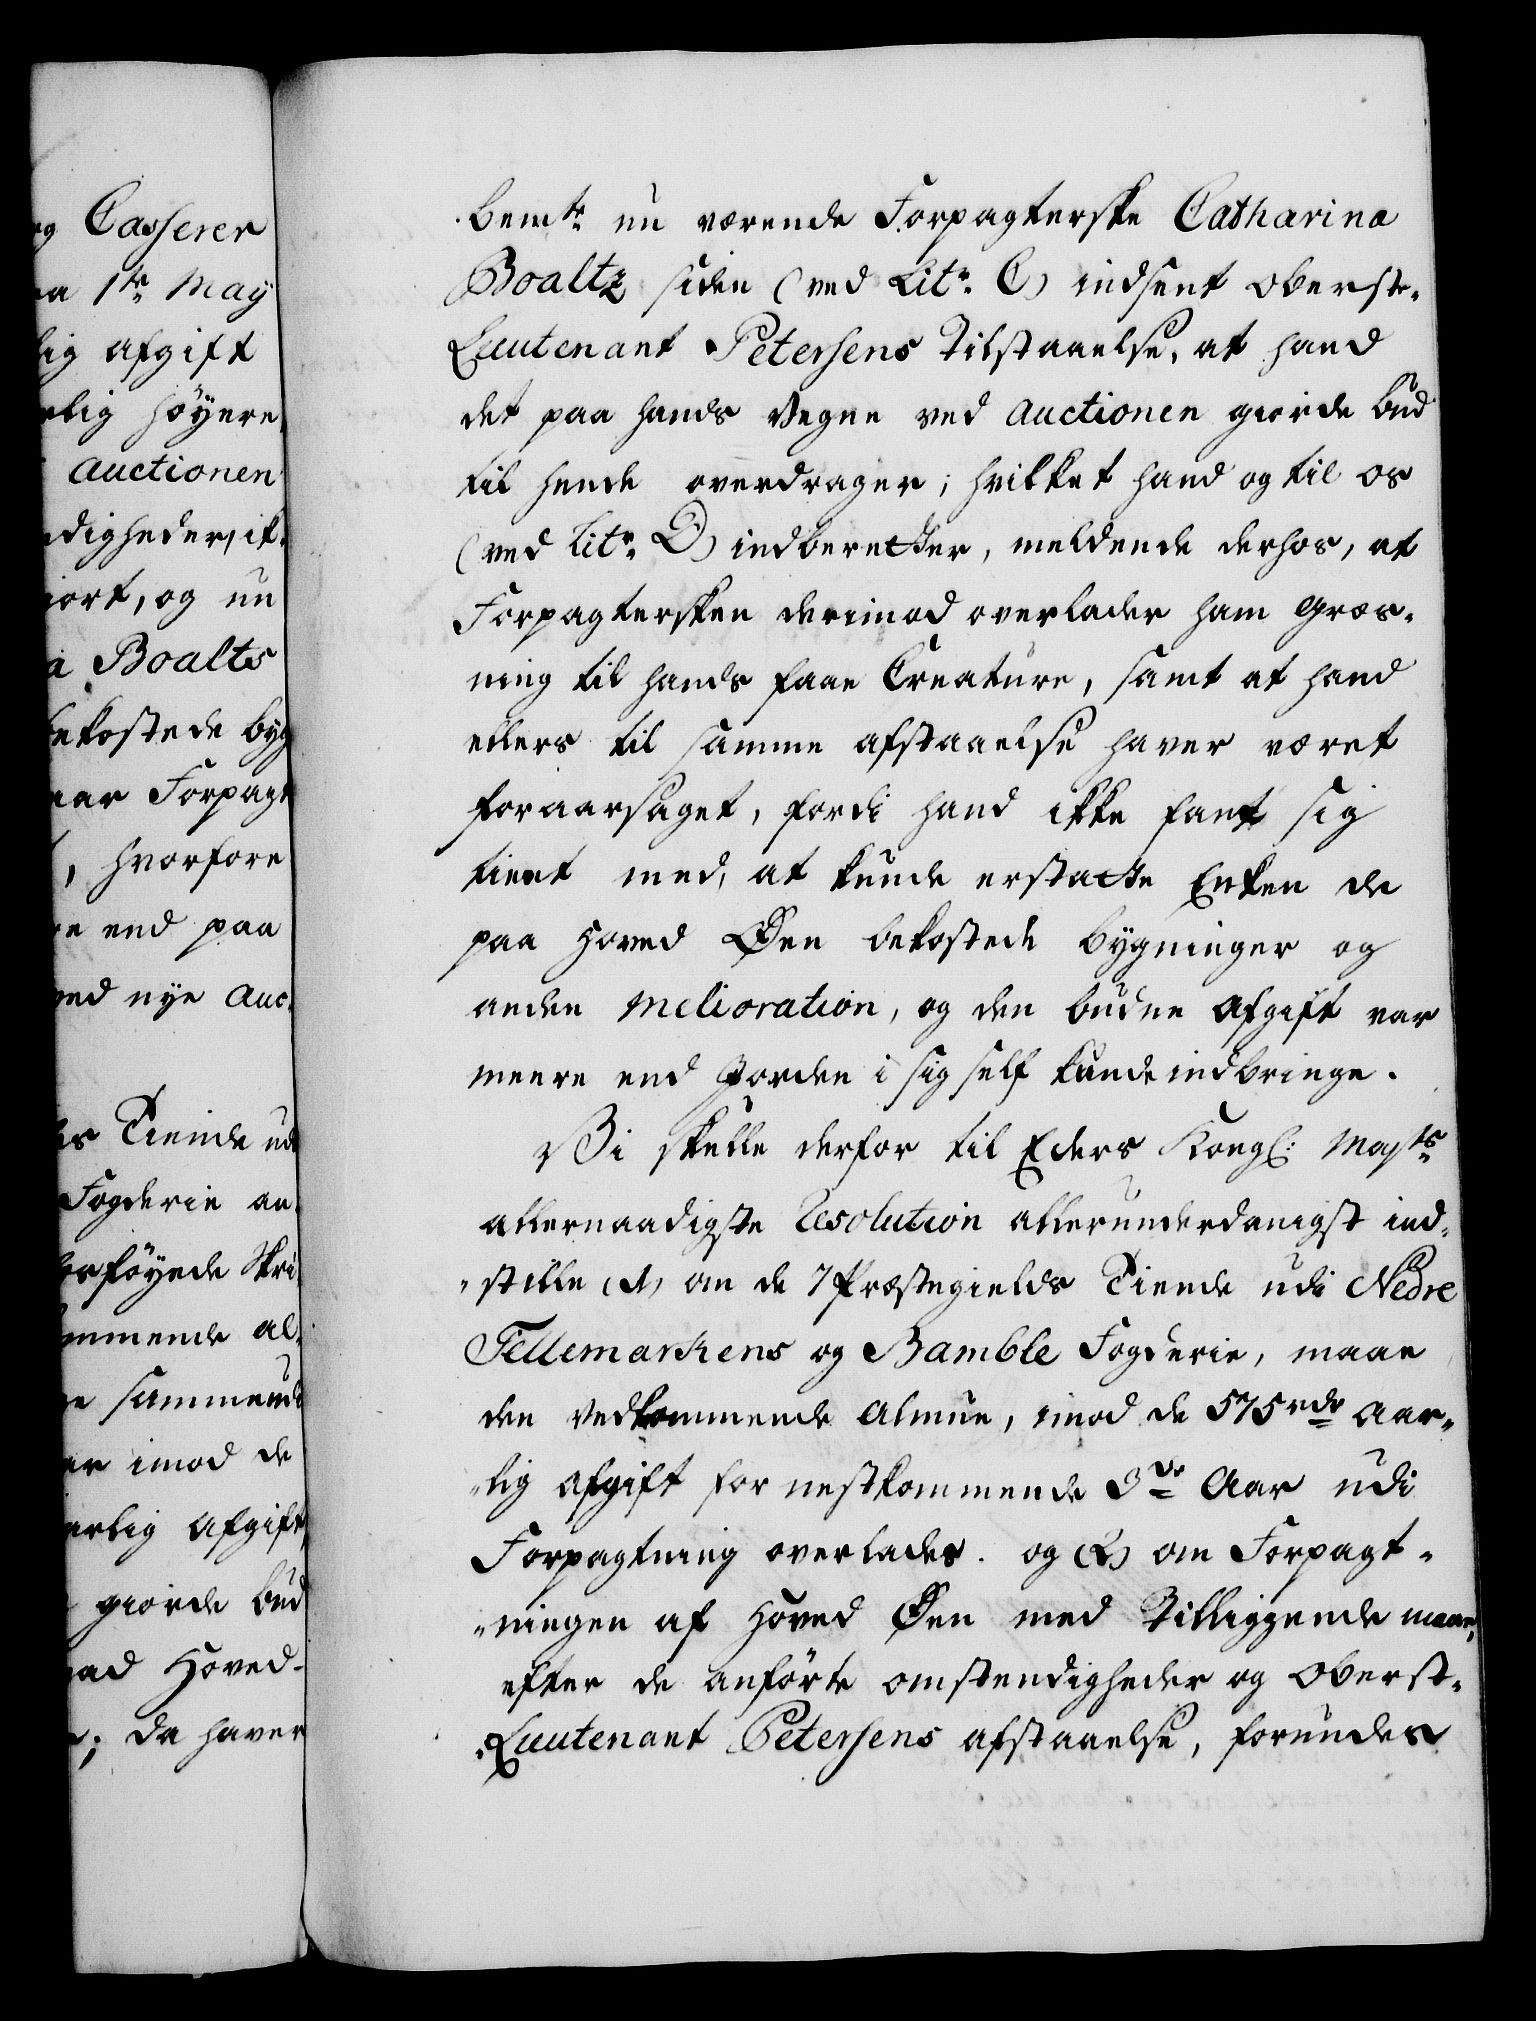 og Casserer
aa 1te May
lig afgift
rlig höyere
auctionen
digheder, ik-
iort, og nu
a Boalts
bekostede byg
aar Forpagt
, hvorfore
re end paa
ved nye auc-
es Tiende ud
Fogderie an-
rföyede Skri
ommende al-
e sammend
er imod de
arlig afgift
giorde bud
ad Hoved-
; da haver
bemte nu værende Forpagterske Catharina
Boaltz siden (ved Litr. C) indsent Oberste-
Lieutenant Petersens Tilstaaelse, at hand
det paa hands Vegne ved auctionen giorde bud
til hende overdrager; hvilket hand og til os
(ved Litr. D) indberetter, meldende derhos, at
Forpagtersken derimod overlader ham græs-
ning til hands faae Creature, samt at hand
ellers til samme afstaaelse haver været
foraarsaget, fordi hand ikke fant sig
tient med, at kunde erstatte Enken de
paa Hoved Øen bekostede bygninger og
anden melioration, og den budne afgift var
meere end Jorden i sig self kunde indbringe.
Vi skulle derfor til Eders Kongl: Majts
allernaadigste Resolution allerunderdanigst ind-
-stille (1) om de 7 Præstegields Tiende udi Nedre
Tellemarkens og Bamble Fogderie, maae
den vedkommende almue, imod de 575 rdr aar-
-lig afgift for nestkommende 3de Aar udi
Forpagtning overlades. og (2) om Forpagt-
-ningen af Hoved Øen med Tilliggende maae,
efter de anförte omstendigheder og Oberst-
-Lieutenant Petersens afstaaelse, forundes